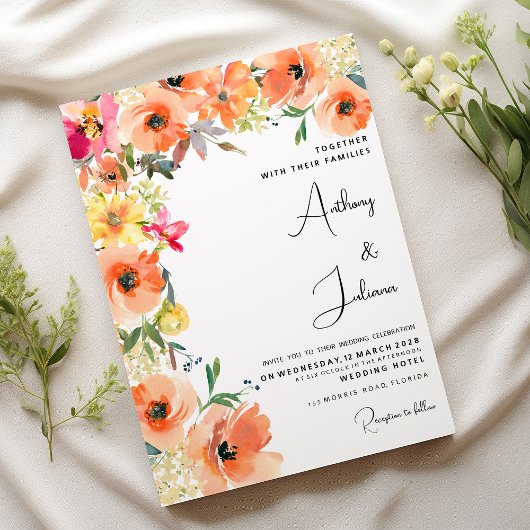 TOGETHER
WITH THEIR FAMILIES
Anthony
&
Juliana
INVITE YOU TO THEIR WEDDING CELEBRATION
ON WEDNESDAY, 12 MARCH 2028
AT SIX OCLOCK IN THE AFTERNOON
WEDDING HOTEL
155 MORRIS ROAD, FLORIDA
Reception to follow